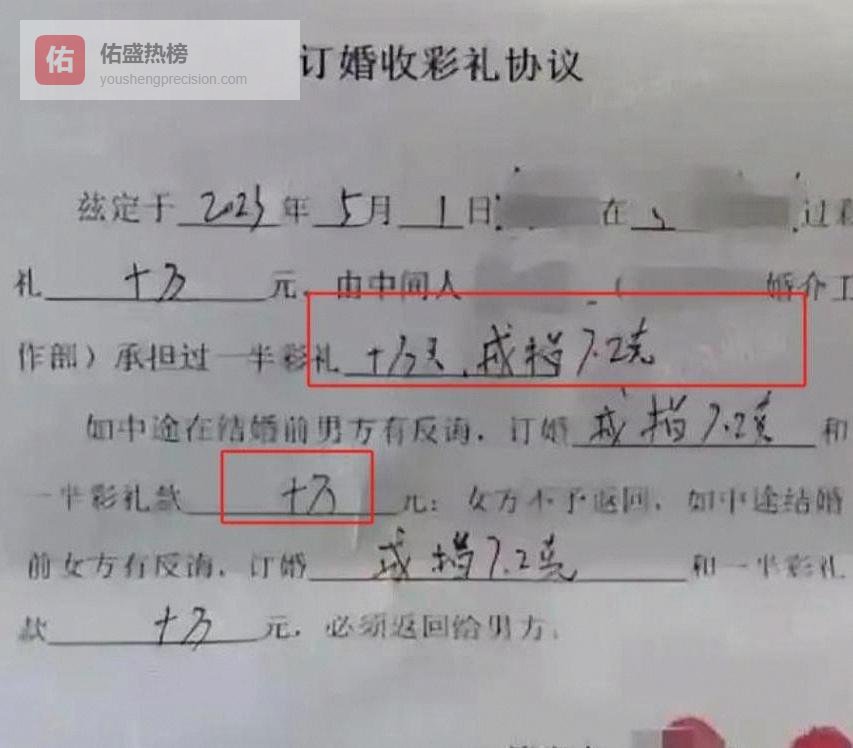 佑 佑盛热榜
youshengprecision.com
订婚收彩礼协议
兹定于 2023 年 5 月 1 日 在 过彩
礼 十万 元，由中间人 （ 婚介工
作部）承担过一半彩礼 十万元，戒指7.2克
如中途在结婚前男方有反悔，订婚 戒指7.2克 和
一半彩礼款 十万 元；女方不予返回，如中途结婚
前女方有反悔，订婚 戒指7.2克 和一半彩礼
款 十万 元，必须返回给男方。